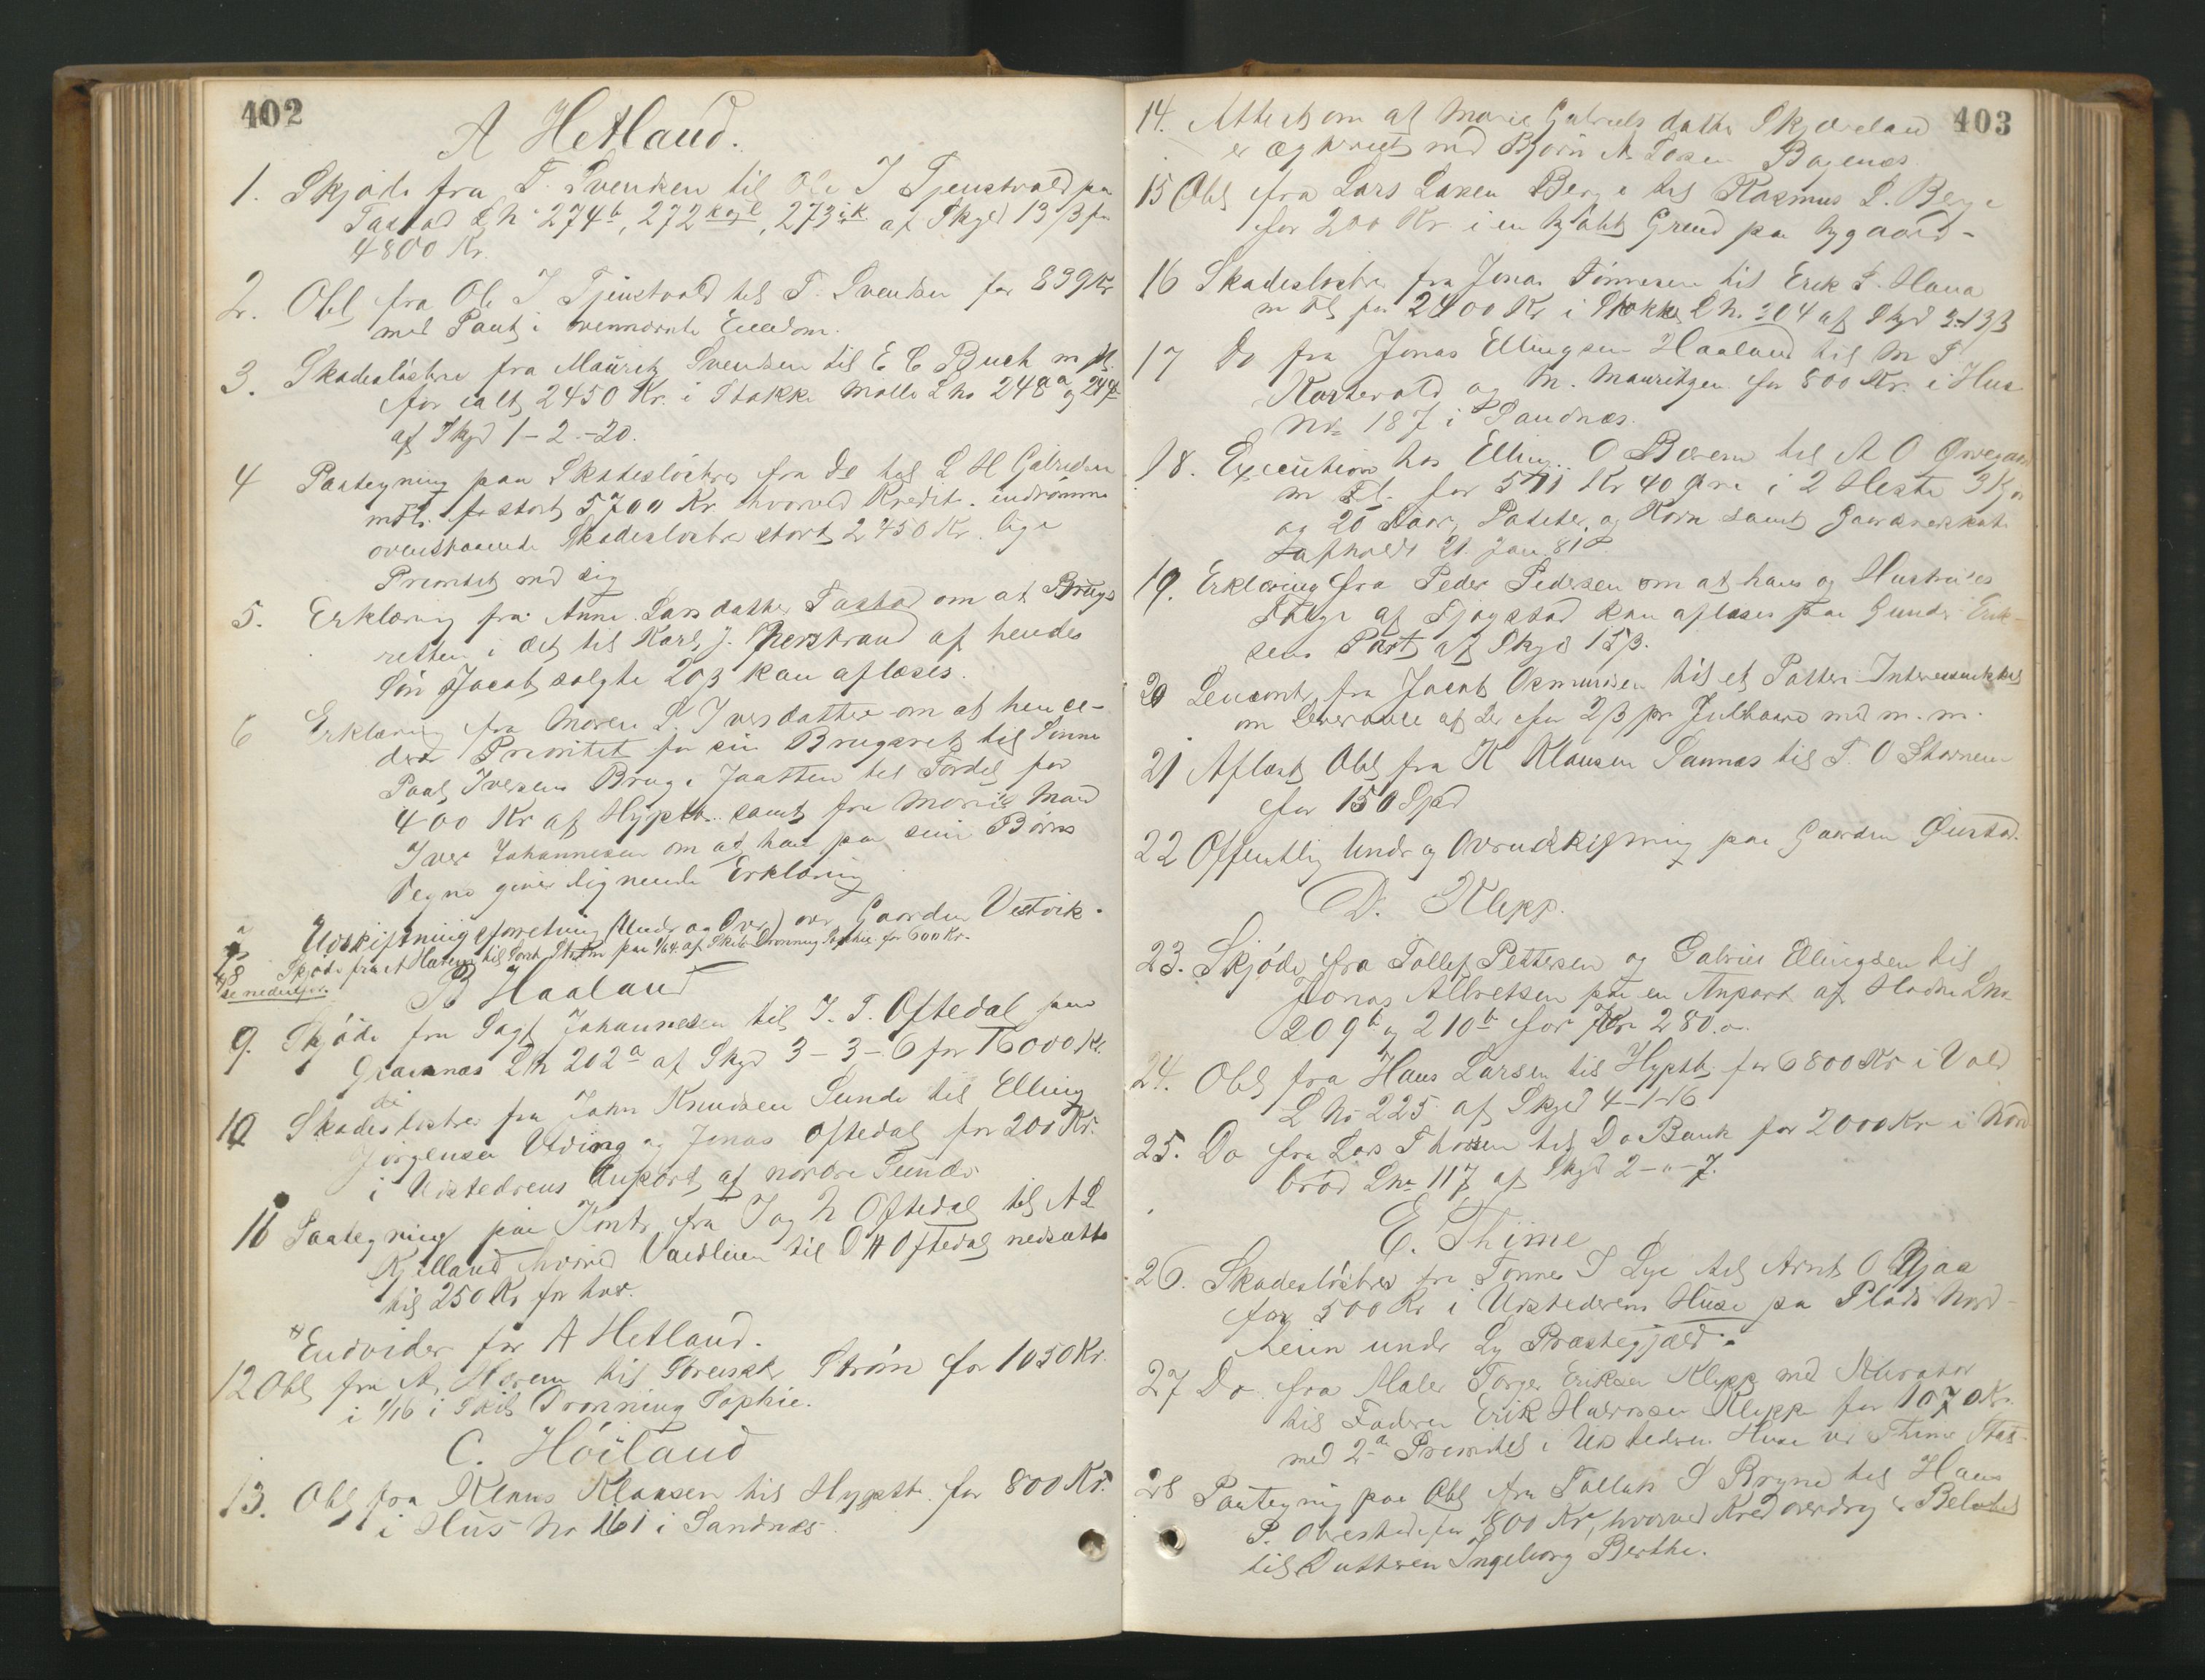 402
A Hetland.
1. Skjøde fra T. Svendsen til Ole J Tjenstvold paa
Tastad L N 274b, 272 k og l, 273 i k af Skyld 13 β for
4800 Kr.
2. Obl fra Ole J Tjenstvold til T. Svendsen for 839 Kr
med Pant i ovennævnte Eiendom.
3. Skadesløsbre fra Mauritz Svendsen til E C Buch m fl.
for ialt 2450 Kr. i Stokke Mølle L No 248a og
af Skyld 1-2-20.
4 Paategning paa Skadesløsbrev fra Do til L H Gabrielsen
m Fl. for stort 5700 Kr hvorved Kredit. indrømme
ovenstaaende Skadesløsbre stort 2450 Kr. lige
Prioritet med sig
5. Erklæring fra Anne Larsdatter Tastad om at Brugs
retten i det til Karl J. Kverstrand af hendes
Søn Jacob solgte 20 β kan aflæses.
6 Erklæring fra Maren L. Iversdatter om at hun ce-
derer Prioritet for sin Brugsret til Sønne
Paal Iversens Brug i Jaatten til Fordel for
400 Kr af Hypthb. samt fra Maries Mand
Iver Johannesen om at han paa sine Børns
Vegne giver lignende Erklæring
7 Udskiftningsforretning (Under og Over) over Gaarden Vestvik.
8 Skjøde fra A Haaven til Sørensk Strøm paa 1/64 af Skib Dronning Sophie for 600 Kr.
se nedenfor.
B Haaland
9. Skjøde fra Sagf Johannesen til J. T. Oftedal paa
Grannes L N 202a af Skyld 3-3-6 for 16000 Kr.
10 Skadesløsbrev fra John Knudsen Sunde til Elling
Jørgensen Utding og Jonas Oftedal for 200 Kr.
i Udstederens Anpart af nordre Sunde
11 Paategning paa Kontr. fra J og N Oftedal til A L
Kjelland hvorved Vandleien til O H Oftedal nedsættes
til 250 Kr for hver.
Endvidere for A Hetland.
12 Obl fra A Haaven til Sørensk Strøm for 1050 Kr.
i 1/16 i Skib Dronning Sophie.
C. Høiland
13. Obl fra Klaus Klausen til Hypthb. for 800 Kr.
i Hus No 161 i Sandnæs
403
14. Attest om at Marie Gabriels datter Skjæveland
er ægteviet med Bjørn A. Larsen Bogenæs
15 Obl fra Lars Larsen Berge til Rasmus L. Berge
for 200 Kr i en kjøbt Grund paa Nygaard -
16 Skadesløsbre fra Jonas Tønnesen til Erik S. Hana
m Fl for 2400 Kr i Stokke L N. 304 af Skyld 3-13 β
17 Do fra Jonas Ellingsen Haaland til M P
Kartevold og M. Mauritzen for 800 Kr. i Hus
No 187 i Sandnæs.
18. Execution hos Elling O Boren til A O Qvegaard
m Fl. for 511 Kr 40 Øre i 2 Heste 3 Kjør
og 20 Faar, Poteter, og Korn samt Gaardsredskab
afholdt 21. Jan 81.
19. Erklæring fra Peder Pedersen om at hans og Hustrues
Folge af Fjogstad kan aflæses paa Gunder Erik-
sens Part af Skyld 15 β.
20 Leiecontr. fra Jacob Osmundsen til et Potteri Interessentskab
om Leverance af Ler for 2 β pr Hulhaard med m. m.
21 Aflæst Obl fra K Klausen Sannæs til T. O Skornem
for 150 Spd
22 Offentlig Under og Overudskiftning paa Gaarden Øiestad.
D. Klepp.
23. Skjøde fra Tollef Pettersen og Gabriel Ellingsen til
Jonas Albretsen paa en Anpart af Hodne L No
209b og 210b for Kr 280.
24. Obl fra Hans Larsen til Hypthb. for 6800 Kr i Vold
L No 225 af Skyld 4-1-16
25. Do fra Lars Thorsen til Do Bank for 2000 Kr i Nord
brød L No 117 af Skyld 2-"-7.
E. Thime
26. Skadesløsbrev fra Tønnes S Lye til Arnt O Njaa
for 500 Kr i Udstederens Huse paa Plads Nord-
heien under Ly Præstegjæld.
27 Do fra Maler Torger Eriksen Klepp med Kurator
til Faderen Erik Halvorsen Klepp for 1070 Kr.
med 2den Prioritet i Udstederens Huse ved Thime Stas.
28 Paategning paa Obl fra Tollak S Bryne til Hans
P. Obrestad for 800 Kr, hvorved Kred overdrager Beløbet
til Datteren Ingeborg Berthe.